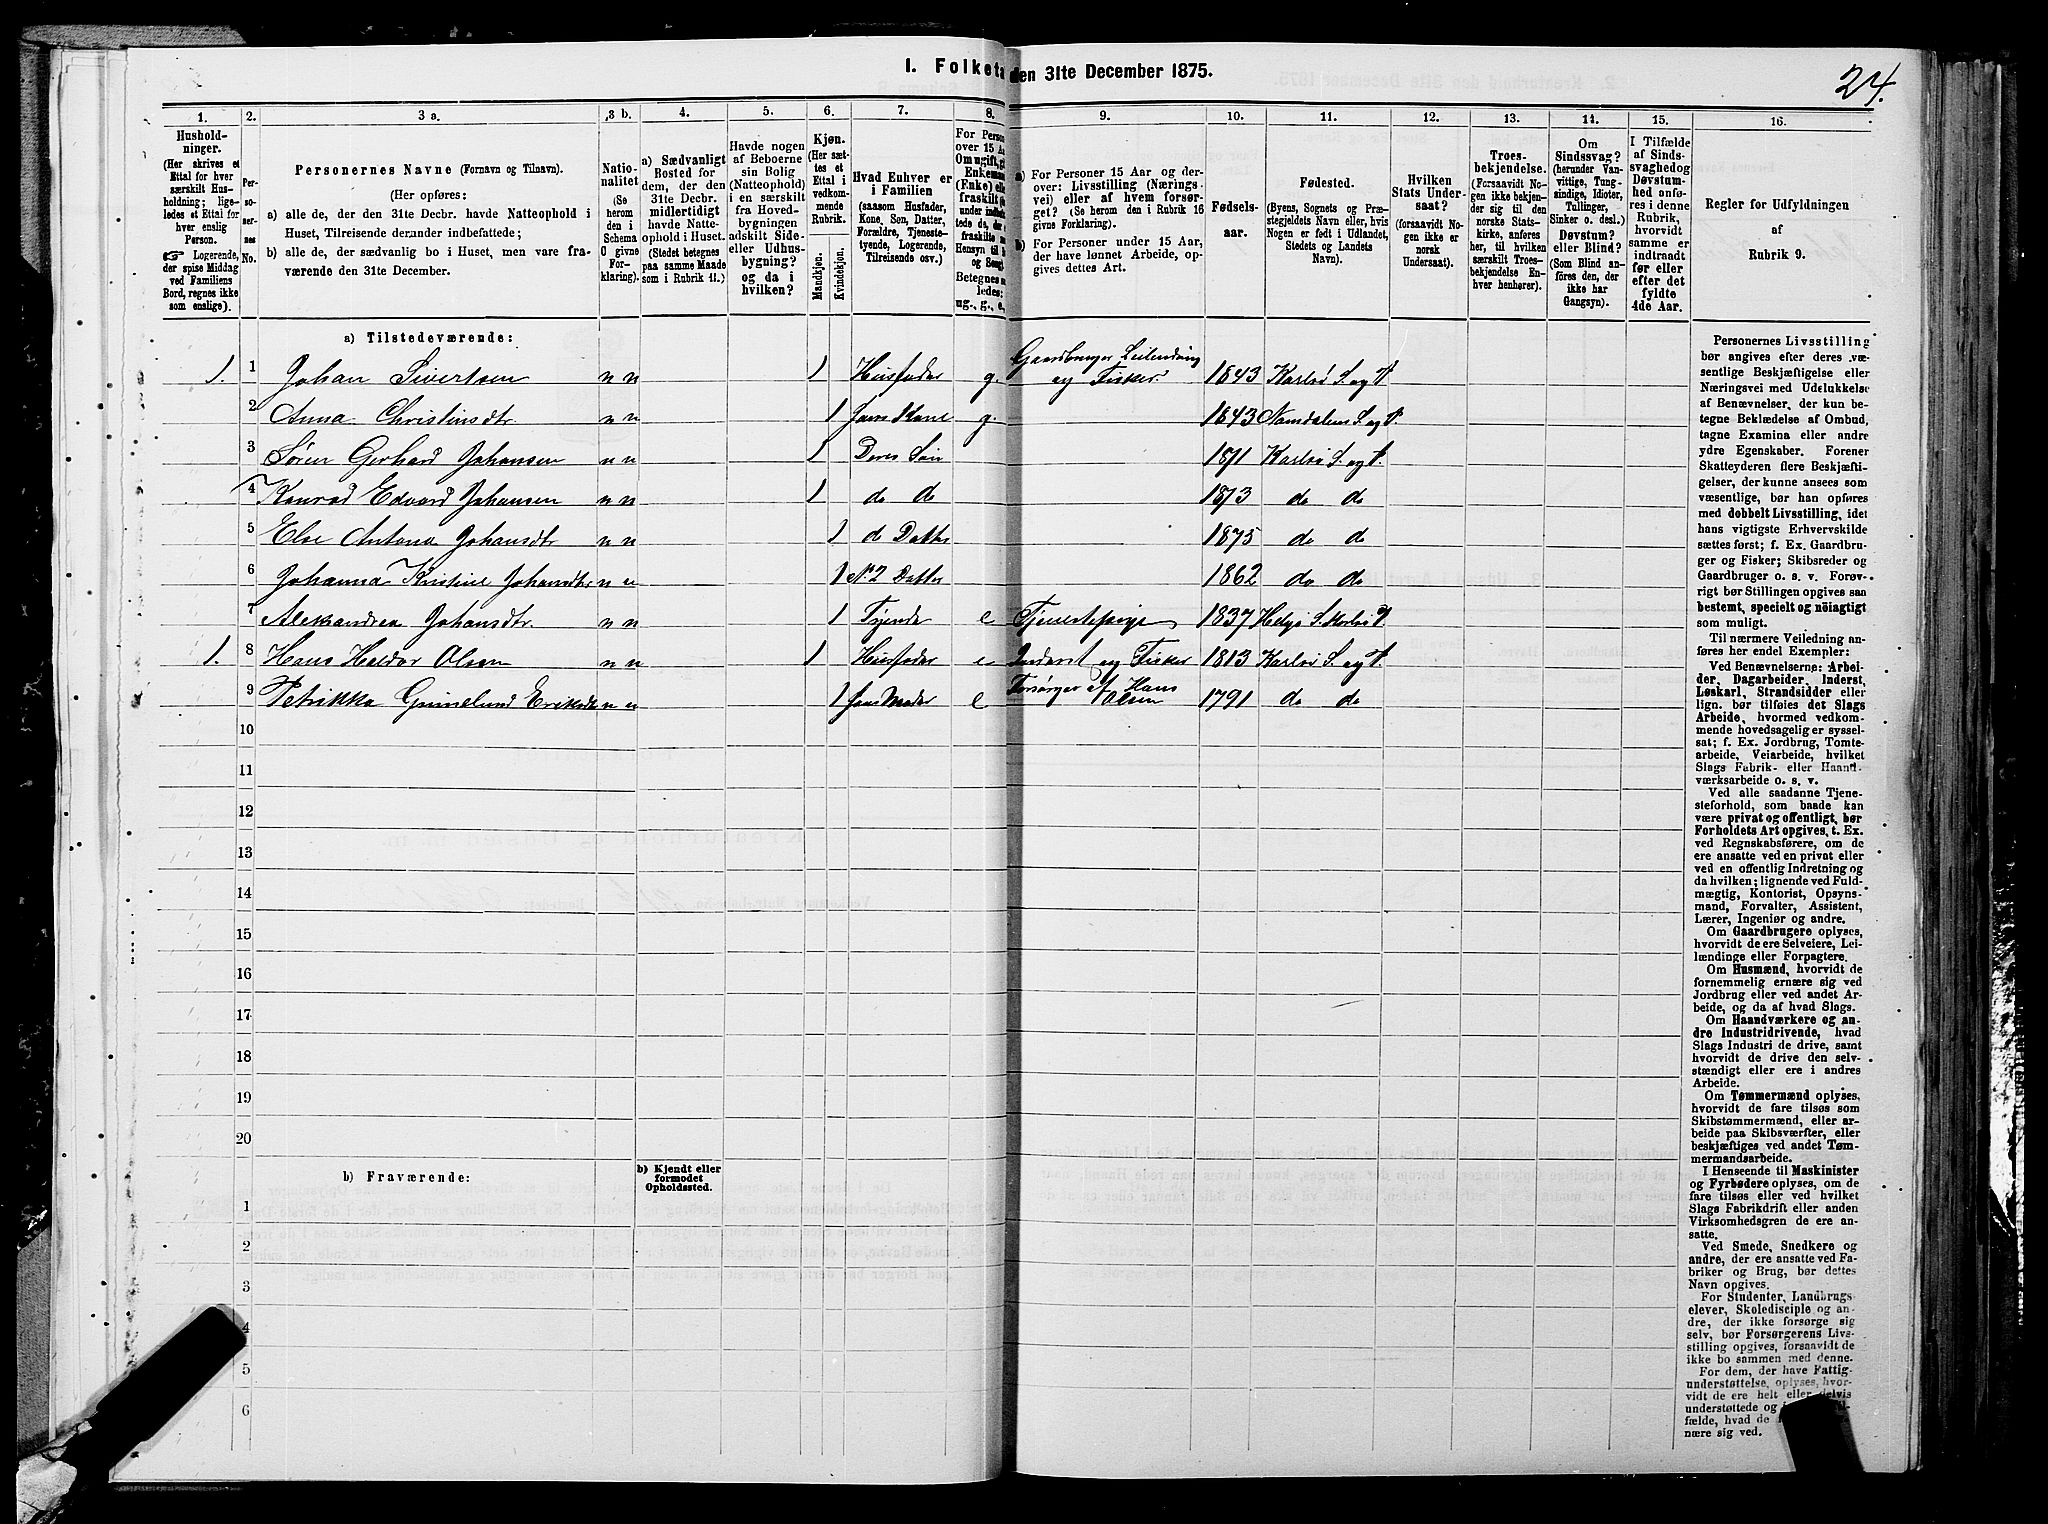 I. Folketa den 31te December 1875.
24.
1.
Hushold-
ninger.
(Her skrives et
Ettal for hver
særskilt Hus-
holdning; lige-
ledes et Ettal for
hver enslig
Person.
☞ Logerende,
der spise Middag
ved Familiens
Bord, regnes ikke
som enslige).
2.
Per-
so-
ner-
nes
No.
3 a.
Personernes Navne (Fornavn og Tilnavn).
(Her opføres:
a) alle de, der den 31te Decbr. havde Natteophold i
Huset, Tilreisende derunder indbefattede;
b) alle de, der sædvanlig bo i Huset, men vare fra-
værende den 31te December.
3 b.
Natio-
nalitet
(Se
herom
den i
Schema
0 givne
For-
klaring).
4.
a) Sædvanligt
Bosted for
dem, der den
31te Decbr.
midlertidigt
havde Natte-
ophold i Huset.
(Stedet betegnes
paa samme Maade
som i Rubrik 11.)
5.
Havde nogen
af Beboerne
sin Bolig
(Natteophold)
i en særskilt
fra Hoved-
bygningen
adskilt Side-
eller Udhus-
bygning?
og da i
hvilken?
6.
Kjøn.
(Her sæt-
tes et
Ettal i
vedkom-
mende
Rubrik.
Mandkjøn.
Kvindekjøn.
7.
Hvad Enhver er
i Familien
(saasom Husfader,
Kone, Søn, Datter,
Forældre, Tjeneste-
tyende, Logerende,
Tilreisende osv.)
8.
For Person
over 15 Aa
Om ugift, gi
Enkeman
(Enke) elle
fraskilt
9.
a) For Personer 15 Aar og der-
over: Livsstilling (Nærings-
vei) eller af hvem forsør-
get? (Se herom den i Rubrik 16
givne Forklaring).
b) For Personer under 15 Aar,
der have lønnet Arbeide, op-
gives dettes Art.
10.
Fødsels-
aar.
11.
Fødested.
(Byens, Sognets og Præ-
stegjeldets Navn eller, hvis
Nogen er født i Udlandet,
Stedets og Landets
Navn).
12.
Hvilken
Stats Under-
saat?
(forsaavidt No-
gen ikke er
norsk
Undersaat).
13.
Troes-
bekjendelse.
(Forsaavidt No-
gen ikke bekjen-
der sig til den
norske Stats-
kirke, anføres
her, til hvilken
særskilt Troes-
bekjendelse En-
hver henhører).
14.
Om
Sindssvag?
(herunder Van-
vittige, Tung-
sindige, Idioter,
Tullinger,
Sinker o. desl.)
Døvstum?
eller Blind?
(Som Blind an-
føres den, der
ikke har
Gangsyn).
15.
I Tilfælde
af Sinds-
svaghed og
Døvstum-
hed anfø-
res i denne
Rubrik,
hvorvidt
samme er
indtraadt
før eller
efter det
fyldte
4de Aar.
16.
Regler for Udfyldningen
af
Rubrik 9.
a) Tilstedeværende:
1. 1 Johan Sivertsen n n 1 Husfader g. Gaardbruger Leilending og Fisker. 1843 Karlsø S. og P.
2 Anna Christinsdtr n n 1 hans Kone g. 1843 Namdalens S. og P.
3 Søren Gerhard Johansen n n 1 Deres Søn 1871 Karlsø S. og P.
4 Konrad Edvard Johansen n n 1 do do 1873 do do
5 Else Antona Johansdtr n n 1 d Datter 1875 do do
6 Johanna Kristine Johansdtr n n 1 N. 2 Datter 1862 do do
7 Aleksandrea Johansdtr. n n 1 Tjende e Tjenestepige 1837 Helgø S. Karlsø P.
1. 8 Hans Haldor Olsen n n 1 Husfader e Inderst og Fisker 1813 Karlsø S. og P.
9 Petrikka Grunelund Eriksdt n n 1 hans Moder e Forsørges af Hans Olsen 1791 do do
10
11
12
13
14
15
16
17
18
19
20
b) Fraværende:
b) Kjendt eller
formodet
Opholdssted.
1
2
3
4
5
6
Personernes Livsstilling
bør angives efter deres væ-
sentlige Beskjæftigelse eller
Næringsvei med Udelukkelse
af Benævnelser, der kun be-
tegne Beklædelse af Ombud,
tagne Examina eller andre
ydre Egenskaber. Forener
Skatteyderen flere Beskjæfti-
gelser, der kunne ansees som
væsentlige, bør han opføres
med dobbelt Livsstilling, idet
hans vigtigste Erhvervskilde
sættes først; f. Ex. Gaardbru-
ger og Fisker; Skibsreder og
Gaardbruger o. s. v. Forøv-
rigt bør Stillingen opgives saa
bestemt, specielt og nöiagtigt
som muligt.
Til nærmere Veiledning an-
føres her endel Exempler:
Ved Benævnelserne: Arbei-
der, Dagarbeider, Inderst,
Løskarl, Strandsidder eller
lign. bør tilføies det Slags
Arbeide, hvormed vedkom-
mende hovedsagelig er syssel-
sat; f. Ex. Jordbrug, Tomte-
arbeide, Veiarbeide, hvilket
Slags Fabrik- eller Haand-
værksarbeide o. s. v.
Ved alle saadanne Tjene-
steforhold, som baade kan
være privat og offentligt, bør
Forholdets Art opgives, t. Ex.
ved Regnskabsførere, om de
ere ansatte ved en privat eller
ved en offentlig Indretning og
da hvilken; lignende ved Fuld-
mægtig, Kontorist, Opsyns-
mand, Forvalter, Assistent,
Lærer, Ingeniør og andre.
Om Gaardbrugere oplyses,
hvorvidt de ere Selveiere, Lei-
lændinge eller Forpagtere.
Om Husmænd, hvorvidt de
fornemmelig ernære sig ved
Jordbrug eller ved andet Ar-
beide, og da af hvad Slags.
Om Haandværkere og an-
dre Industridrivende, hvad
Slags Industri de drive, samt
hvorvidt de drive den selv-
stændigt eller ere i andres
Arbeide.
Om Tømmermænd oplyses,
hvorvidt de fare tilsøs som
Skibstømmermænd, eller ar-
beide paa Skibsværfter, eller
beskjæftiges ved andet Tøm-
mermandsarbeide.
I Henseende til Maskinister
og Fyrbødere oplyses, om de
fare tilsøs eller ved hvilket
Slags Fabrikdrift eller anden
Virksomhedsgren de ere an-
satte.
Ved Smede, Snedkere og
andre, der ere ansatte ved Fa-
briker og Brug, bør dettes
Navn opgives.
For Studenter, Landbrugs-
elever, Skoledisciple og an-
dre, der ikke forsørge sig
selv, bør Forsørgerens Livs-
stilling opgives, forsaavidt de
ikke bo sammen med denne.
For dem, der have Fattig-
understøttelse, oplyses, hvor-
vidt de ere helt eller delvis
understøttede og i
fælde, hvad de
nære sig ved.